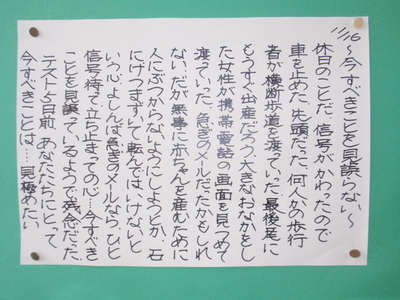 11/16
～今すべきことを見誤らない～
休日のことだ。信号がかわったので
車を止めた。先頭だった。何人かの歩行
者が横断歩道を渡っていった。最後尾に
もうすぐ出産だろう、大きなおなかをし
た女性が携帯電話の画面を見つめて
渡っていった。急ぎのメールだったかもしれ
ない。だが無事に赤ちゃんを産むために
人にぶつからないようにしようとか、石
にけつまずいて転んではいけないと
いう心。よしんば急ぎのメールなら、ひと
信号待って立ち止まっての心…今すべき
ことを見誤っているようで残念だった。
テスト5日前。あなたたちにとって、
今すべきことは……見極めたい